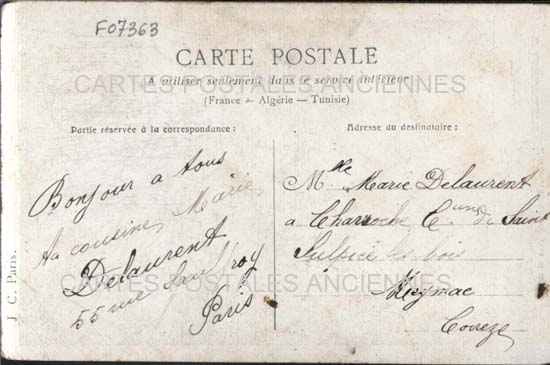 F07363
CARTE POSTALE
A utiliser seulement dans le service intérieur
(France - Algérie — Tunisie)
CARTES POSTALES ANCIENNES
Partie réservée à la correspondance :
Bonjour a tous
ta cousine, Marie
Delaurent
55 rue
Paris
J. C. Paris.
Adresse du destinataire :
Mlle Marie Delaurent
a Charroche, Cune de Saint
Sulpice les bois
Meymac
Correze
CARTES POSTALES ANCIENNES